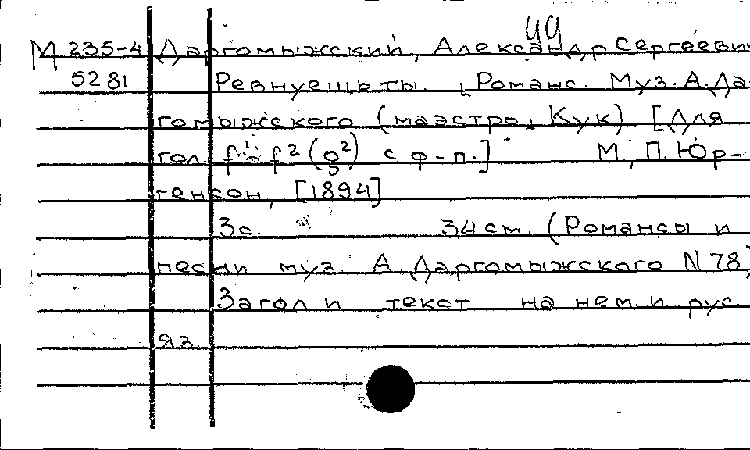 49
М 235-4 Даргомыжский, Александр Сергееви
5281 Ревнуешь ты. Романс. Муз. А. Да
гомыжского (маэстро Кук) [Для
гол. f¹-f² (g²) с ф-п.] М., П. Юр-
генсон, [1894]
3 с. 34 см. (Романсы и
песни муз. А. Даргомыжского N 78)
Загол. и текст на нем. и рус.
яз.